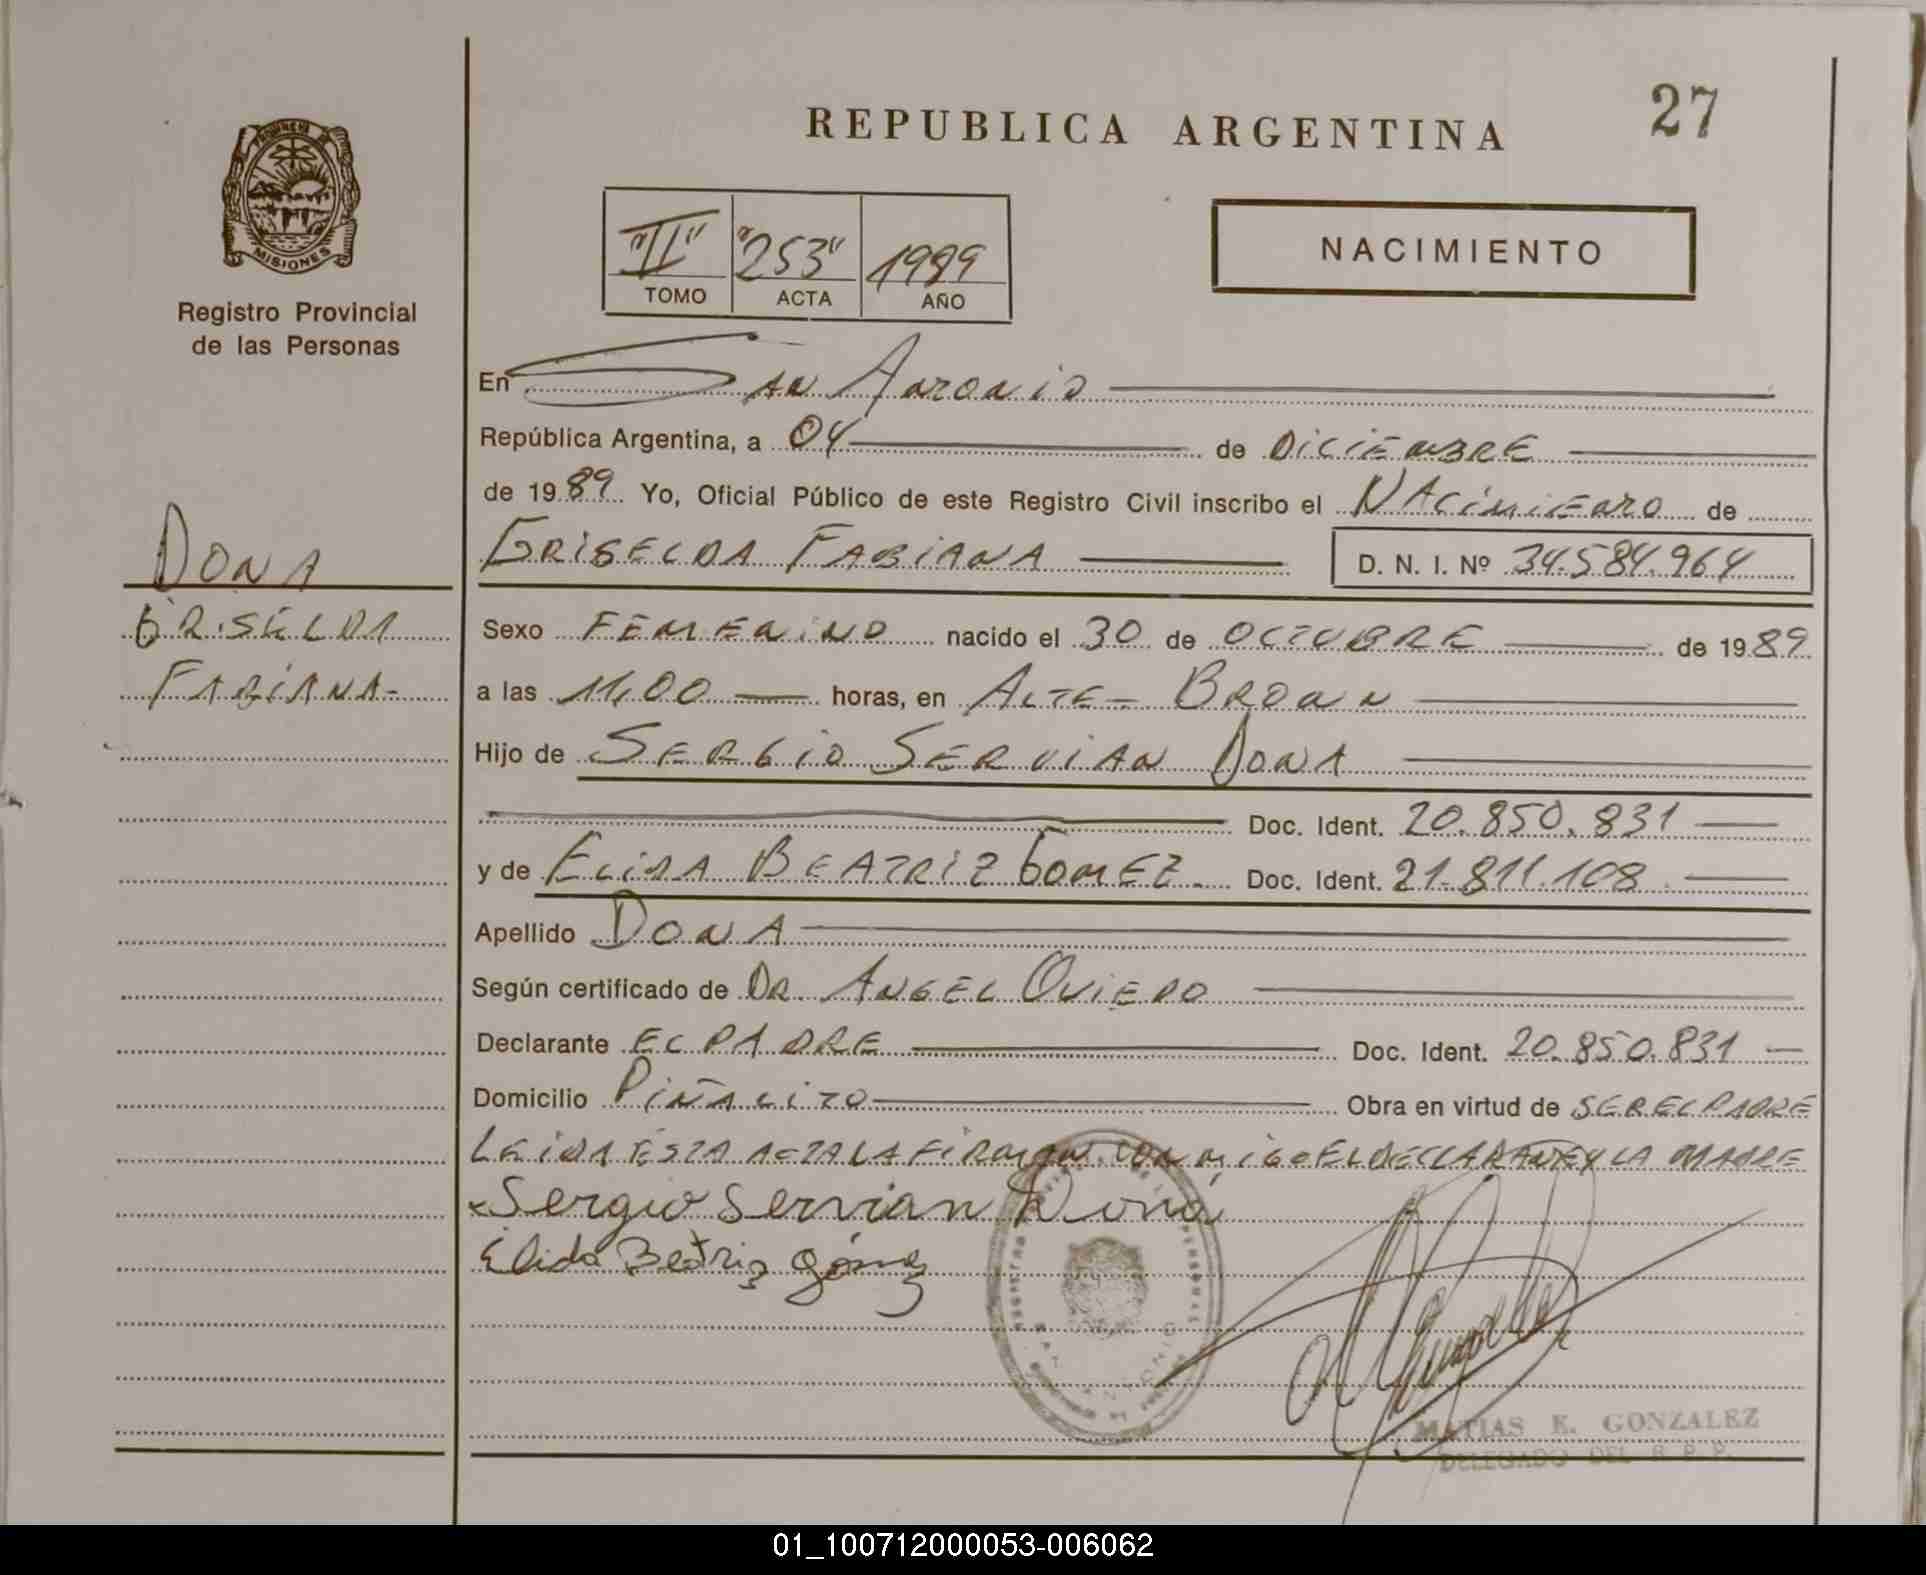 REPUBLICA ARGENTINA
27
MISIONES
Registro Provincial
de las Personas
"II" "253" 1989
TOMO ACTA AÑO
NACIMIENTO
En San Antonio
República Argentina, a 04 de Diciembre
de 1989 Yo, Oficial Público de este Registro Civil inscribo el Nacimiento de
Griselda Fabiana D. N. I. Nº 34.584.964
Dona
Griselda
Fabiana-
Sexo Femenino nacido el 30 de Octubre de 1989
a las 11,00 horas, en Alte- Brown
Hijo de Sergio Servian Dona
Doc. Ident. 20.850.831
y de Elida Beatriz Gomez- Doc. Ident. 21.811.108
Apellido Dona
Según certificado de Dr. Angel Oviedo
Declarante El Padre Doc. Ident. 20.850.831
Domicilio Piñalito Obra en virtud de ser el padre
Leida esta acta la firman conmigo el declarante y la madre
Sergio Servian Doná
Elida Beatriz Gómez
MATIAS E. GONZALEZ
DELEGADO DEL R. P. P.
01_100712000053-006062